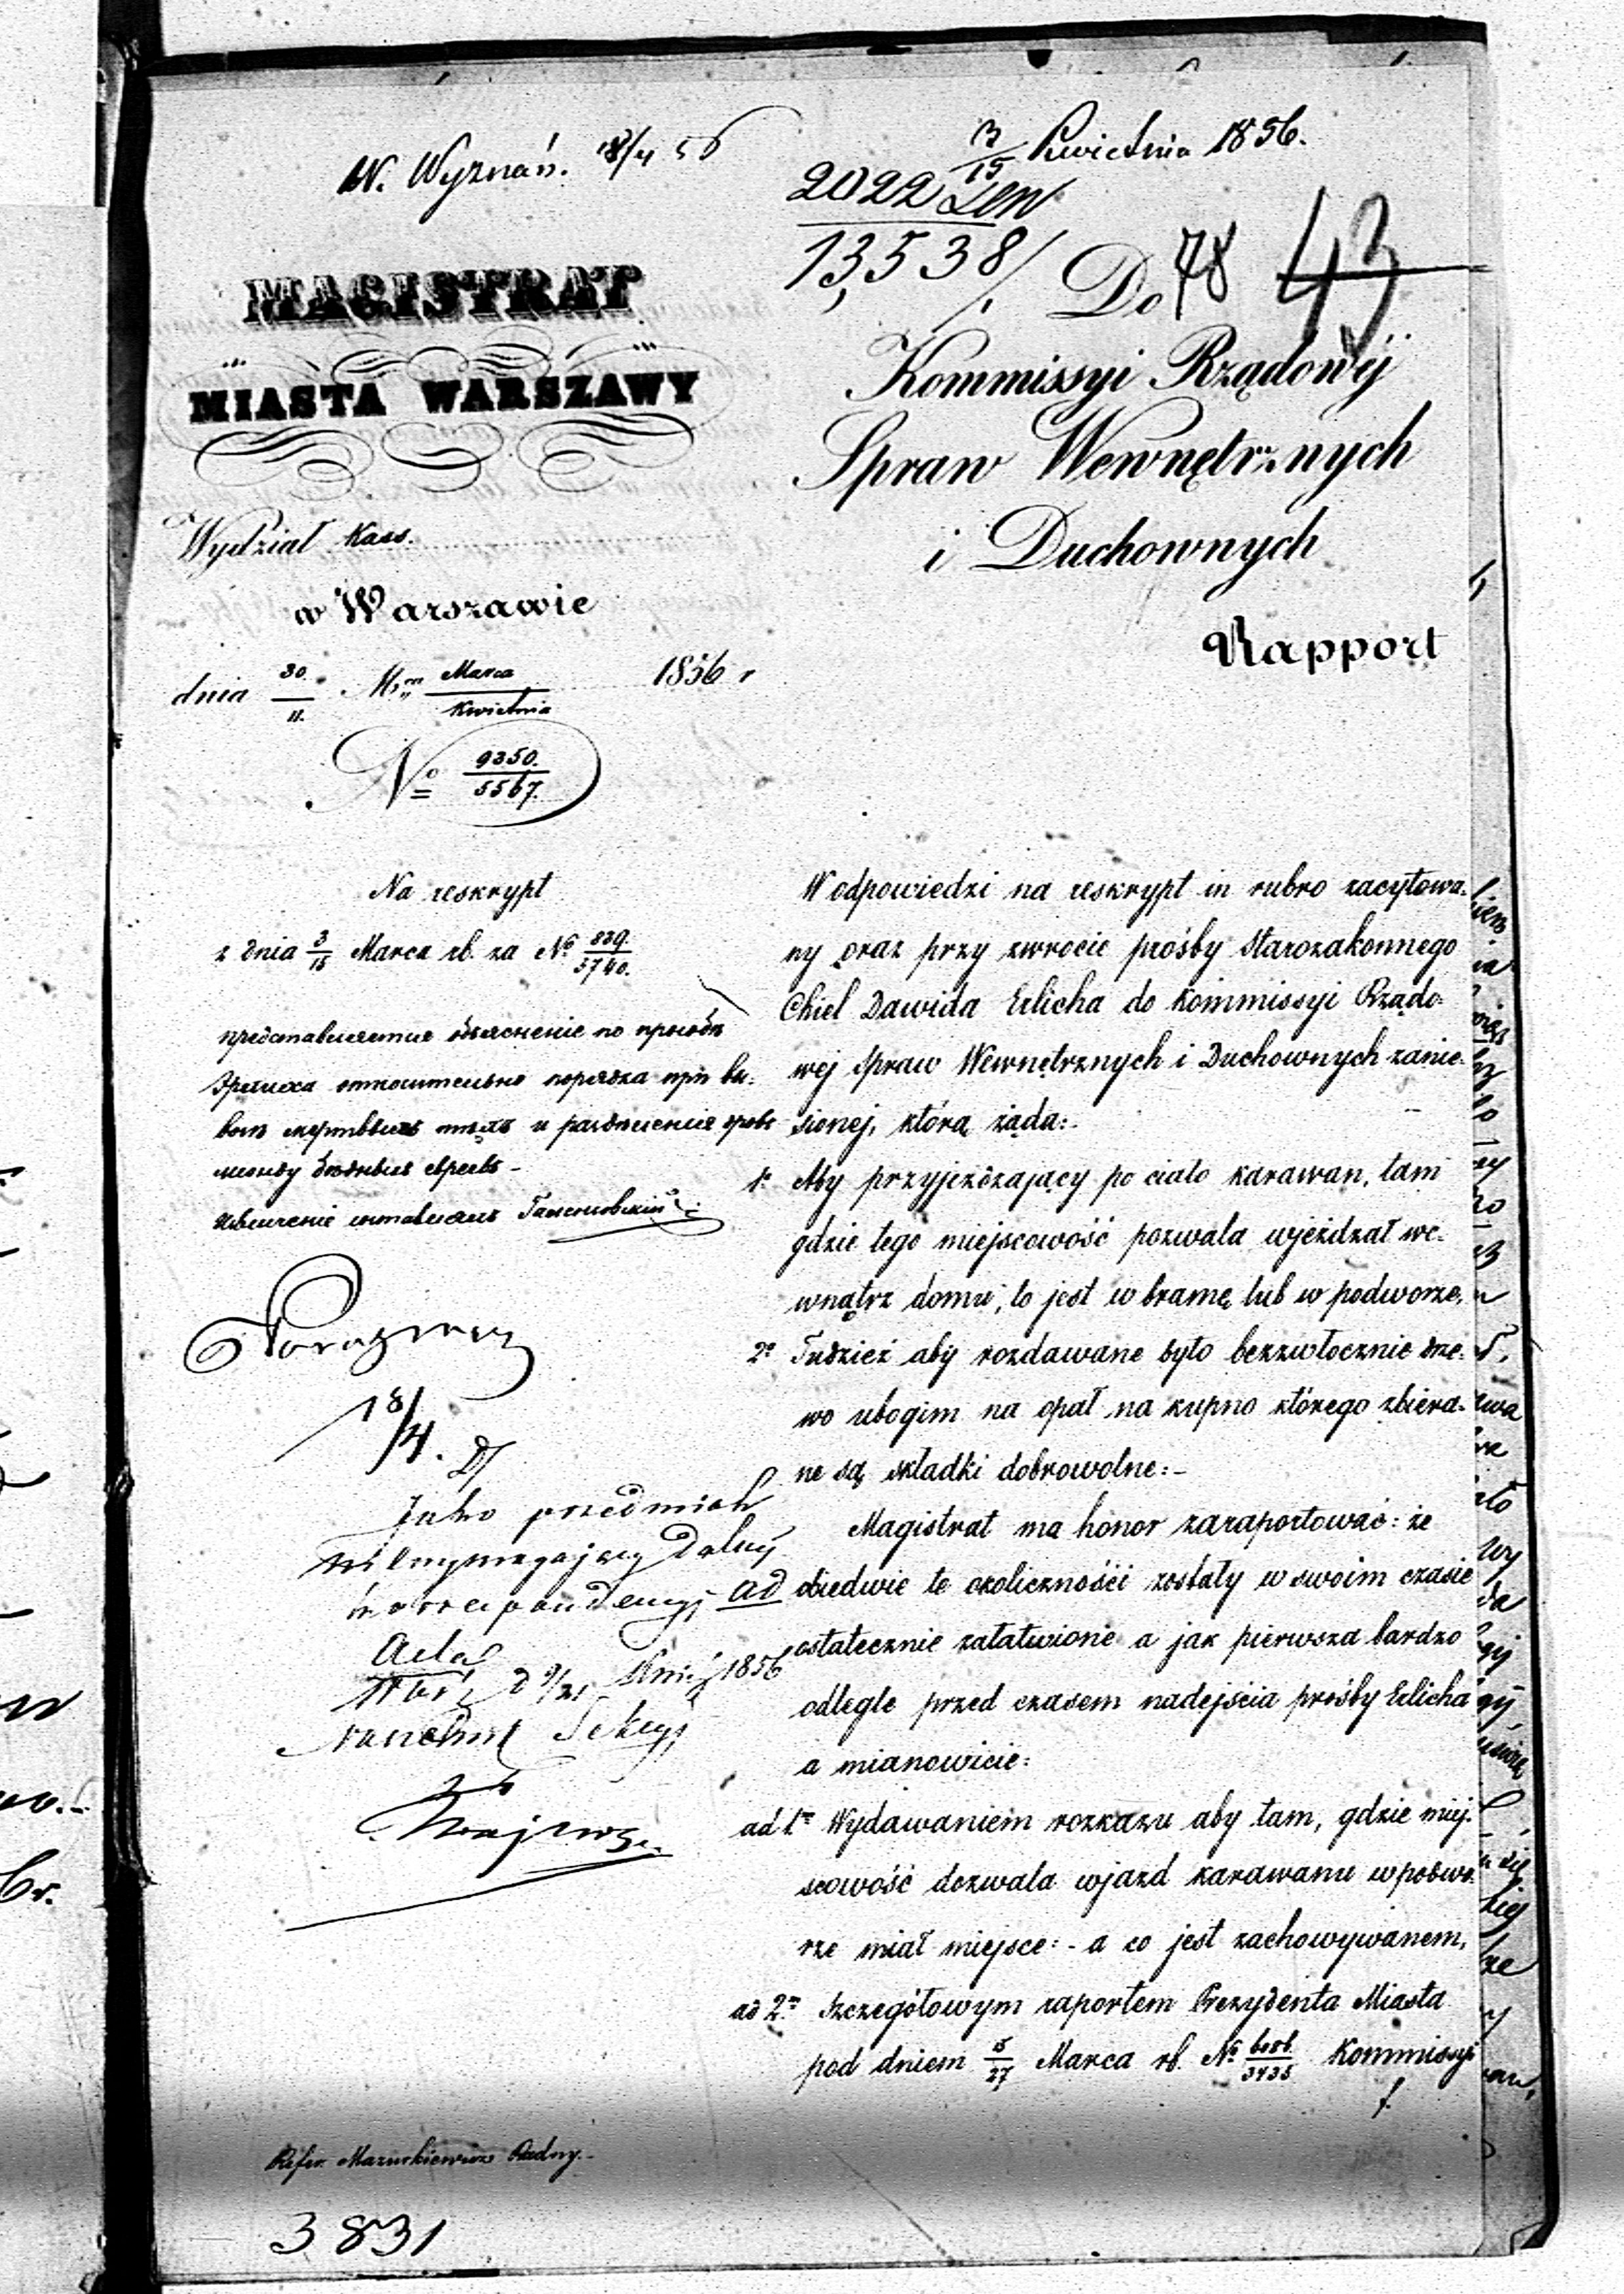 W. Wyznań. 18/4 56
3/15 Kwietnia 1856.
2022
13,538/.
Do 78 43
Kommissyi Rządowéj
Spraw Wewnętrznych
i Duchownych
Rapport
MAGISTRAT
MIASTA WARSZAWY
Wydział Kass.
w Warszawie
dnia 30/11. M-ca Marca/Kwietnia 1856 r
No 9350./5567.
Na reskrypt
z dnia 3/15 Marca rb. za No 839./5740.
представляется объясненіе по просьбѣ
Эрлиха относительно порядка при вы-
возѣ мертвыхъ тѣлъ и раздѣленія дровъ
между бѣдныхъ евреевъ –
18/4.
Jako przedmiot
nie wymagający dalszéj
korrespondencyi ad
acta
d 9/21 1856
Naczelnik Sekcyi
W odpowiedzi na reskrypt in rubro zacytowa-
ny oraz przy zwrocie prośby Starozakonnego
Chiel Dawida Erlicha do Kommissyi Rządo-
wej Spraw Wewnętrznych i Duchownych zanie-
sionej, którą żąda:-
1o Aby przyjeżdżający po ciało karawan, tam
gdzie tego miejscowość pozwala wjeżdżał we-
wnątrz domu, to jest w bramę lub w podworze.
2o Tudzież aby rozdawane było bezzwłocznie drze-
wo ubogim na opał na kupno którego zbiera-
ne są składki dobrowolne:-
Magistrat ma honor zaraportować: że
obiedwie te okoliczności zostały w swoim czasie
ostatecznie załatwione a jak pierwsza bardzo
odlegle przed czasem nadejścia prośby Erlicha
a mianowicie:
ad 1m Wydawaniem rozkazu aby tam, gdzie miej-
scowość dozwala wjazd karawanu w podwo-
rze miał miejsce:- a co jest zachowywanem,
ad 2m Szczegółowym raportem Prezydenta Miasta
pod dniem 15/27 Marca rb. No 6086/3435 Kommissyi
Refer. Mazurkiewicz Radny.-
3831